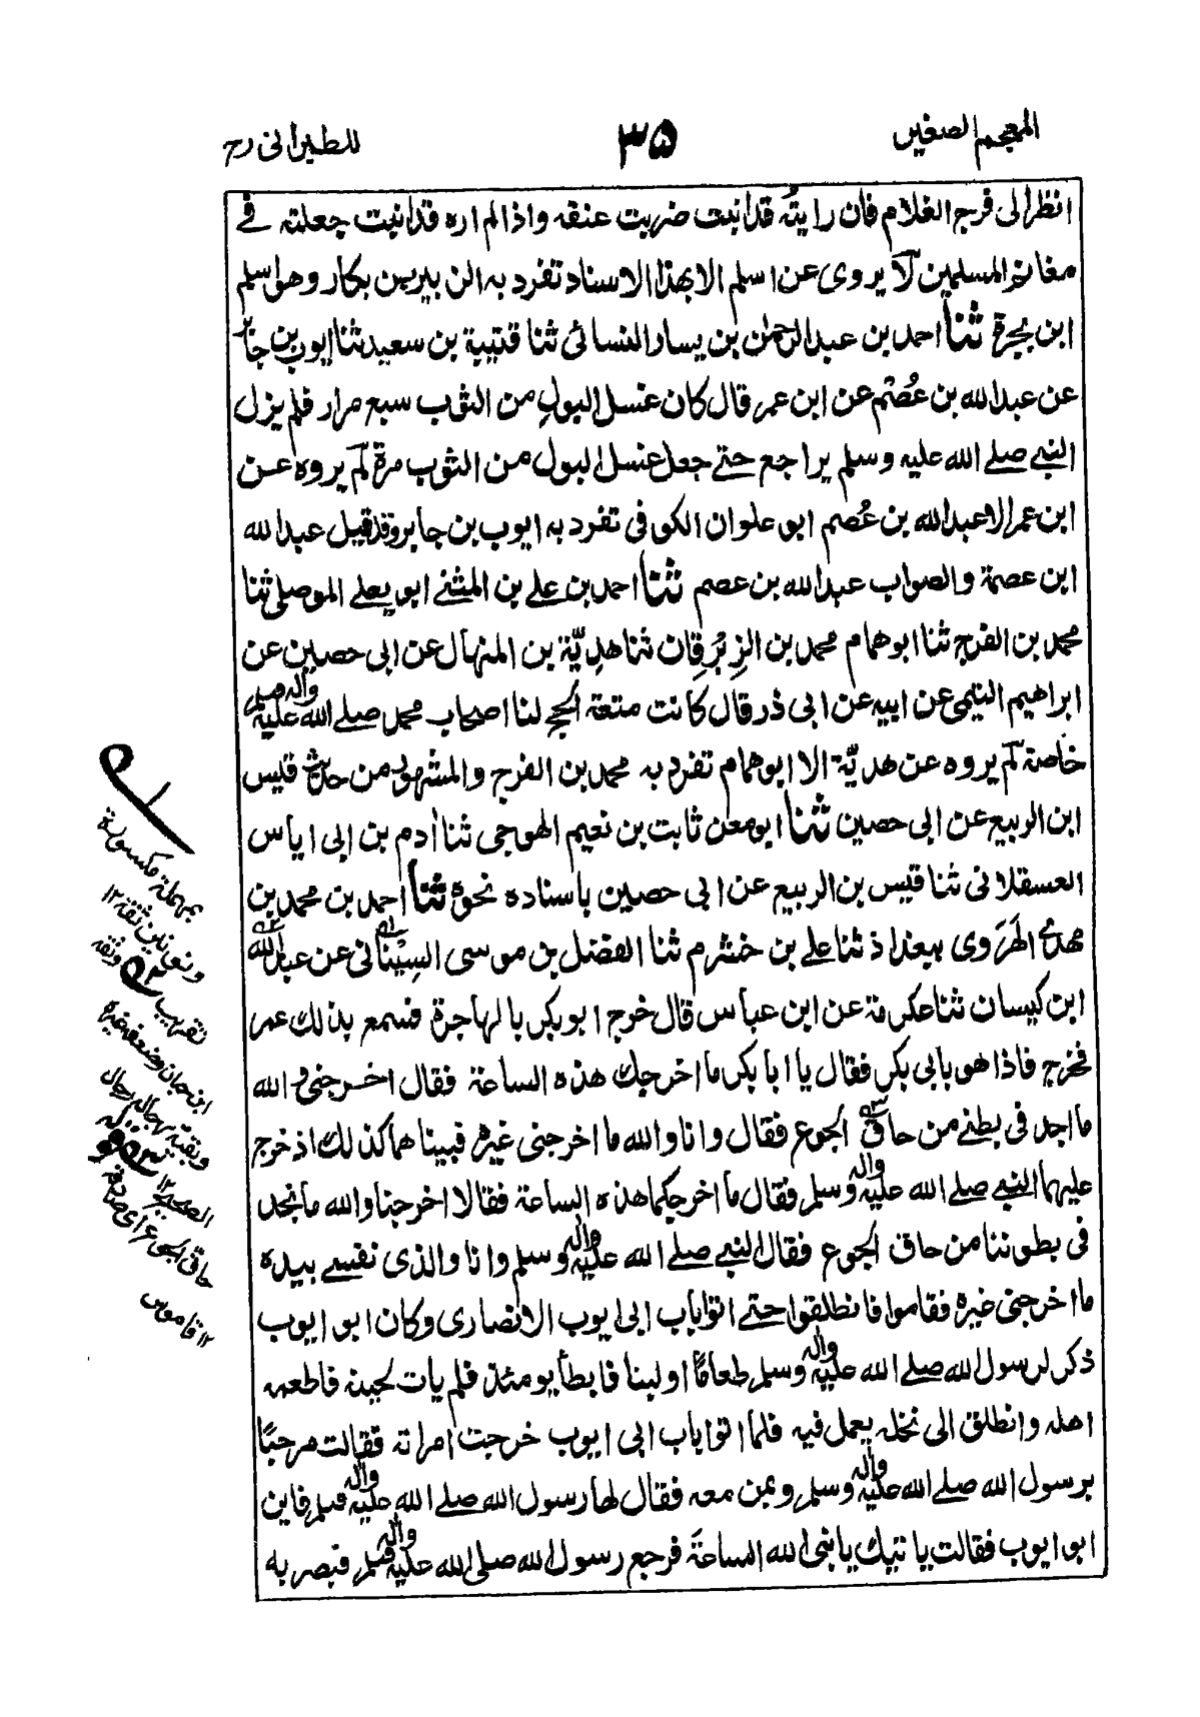 المعجم الصغير
٣٥
للطبرانی رح
انظر الی فرج الغلام فان رایتُه قد انبت ضربت عنقه واذا لم اره قد انبت جعلته فے
مغانم المسلمین لا یروی عن اسلم الا بهذا الاسناد تفرد به الزبیر بن بکار وهو اسلم
ابن بُجرة ثنا احمد بن عبد الرحمٰن بن یسار النسائی ثنا قتیبة بن سعید ثنا ایوب بن جابر
عن عبد الله بن عُصْم عن ابن عمر قال کان غسل البولِ من الثوب سبع مرار فلم یزل
النبے صلے الله علیه وسلم یراجع حتے جعل غسل البول من الثوب مرة لم یروه عن
ابن عمر الا عبد الله بن عُصم ابو علوان الکوفی تفرد به ایوب بن جابر وقد قیل عبد الله
ابن عصمة والصواب عبد الله بن عصم ثنا احمد بن علے بن المثنے ابو یعلے الموصلی ثنا
محمد بن الفرج ثنا ابو همام محمد بن الزِبْرِقان ثنا هدِیّة بن المنهال عن ابی حصین عن
ابراهیم التیمی عن ابیه عن ابی ذر قال کانت متعة الحج لنا اصحاب محمد صلے الله علیه واله وسلم
خاصة لم یروه عن هدیّة الا ابو همام تفرد به محمد بن الفرج والمشهور من حدیث قیس
ابن الربیع عن ابی حصین ثنا ابو معن ثابت بن نعیم الهوجی ثنا اٰدم بن ابی ایاس
العسقلانی ثنا قیس بن الربیع عن ابی حصین باسناده نحوه ثنا احمد بن محمد بن
مهدی الهَرَوی ببغداذ ثنا علے بن خشرم ثنا الفضل بن موسی السِیْنانی عن عبد الله
ابن کیسان ثنا عکرمة عن ابن عباس قال خرج ابو بکر بالهاجرة فسمع بذلك عمر
فخرج فاذا هو بابی بکر فقال یا ابا بکر ما اخرجك هذه الساعة فقال اخرجنی والله
ما اجد فی بطنے من حاق الجوع فقال وانا والله ما اخرجنی غیره فبینا هما کذلك اذ خرج
علیهما النبے صلے الله علیه واله وسلم فقال ما اخرجکما هذه الساعة فقالا اخرجنا والله ما نجد
فی بطوننا من حاق الجوع فقال النبے صلے الله علیه واله وسلم وانا والذی نفسے بیده
ما اخرجنی غیره فقاموا فانطلقوا حتے اتوا باب ابی ایوب الانصاری وکان ابو ایوب
ذکر لرسول الله صلے الله علیه واله وسلم طعامًا او لبنا فابطأ یومئذ فلم یات لحینه فاطعمه
اهله وانطلق الی نخله یعمل فیه فلما اتوا باب ابی ایوب خرجت امراته فقالت مرحبًا
برسول الله صلے الله علیه واله وسلم وبمن معه فقال لها رسول الله صلے الله علیه واله وسلم فاین
ابو ایوب فقالت یاتیك یا نبی الله الساعةَ فرجع رسول الله صلی الله علیه واله وسلم فبصر به
بمهملة مکسورة
ونونین ثقة ١٢
تقریب وثقه
ابن حبان وضعفه غیره
وبقیة رجاله رجال
الصحیح ١٢
حاق الجوع ای صادقه
١٢ قاموس